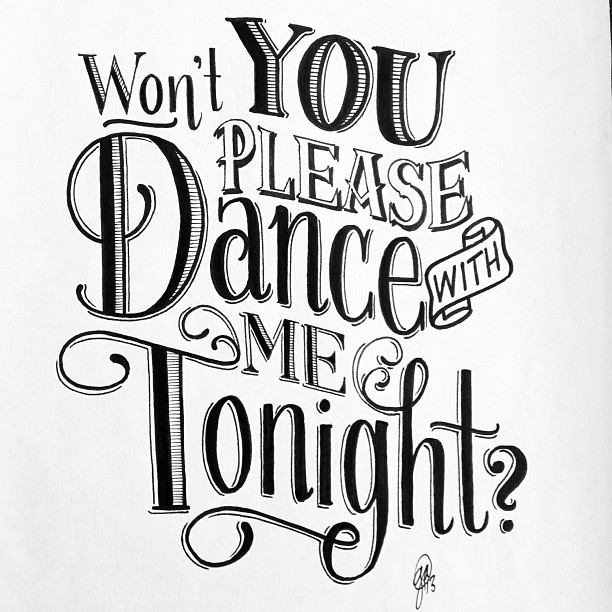 Won't YOU
PLEASE
Dance WITH
ME
Tonight?